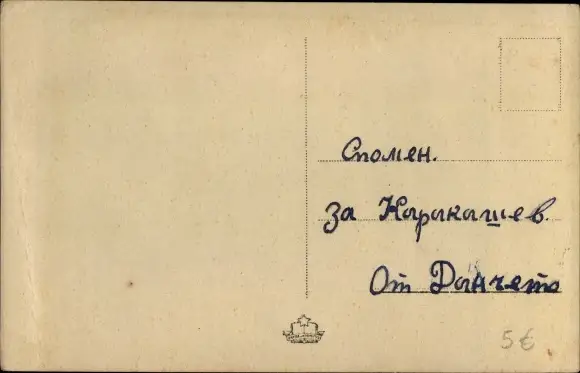 Спомен.
за Каракашев.
От Данчето
5€